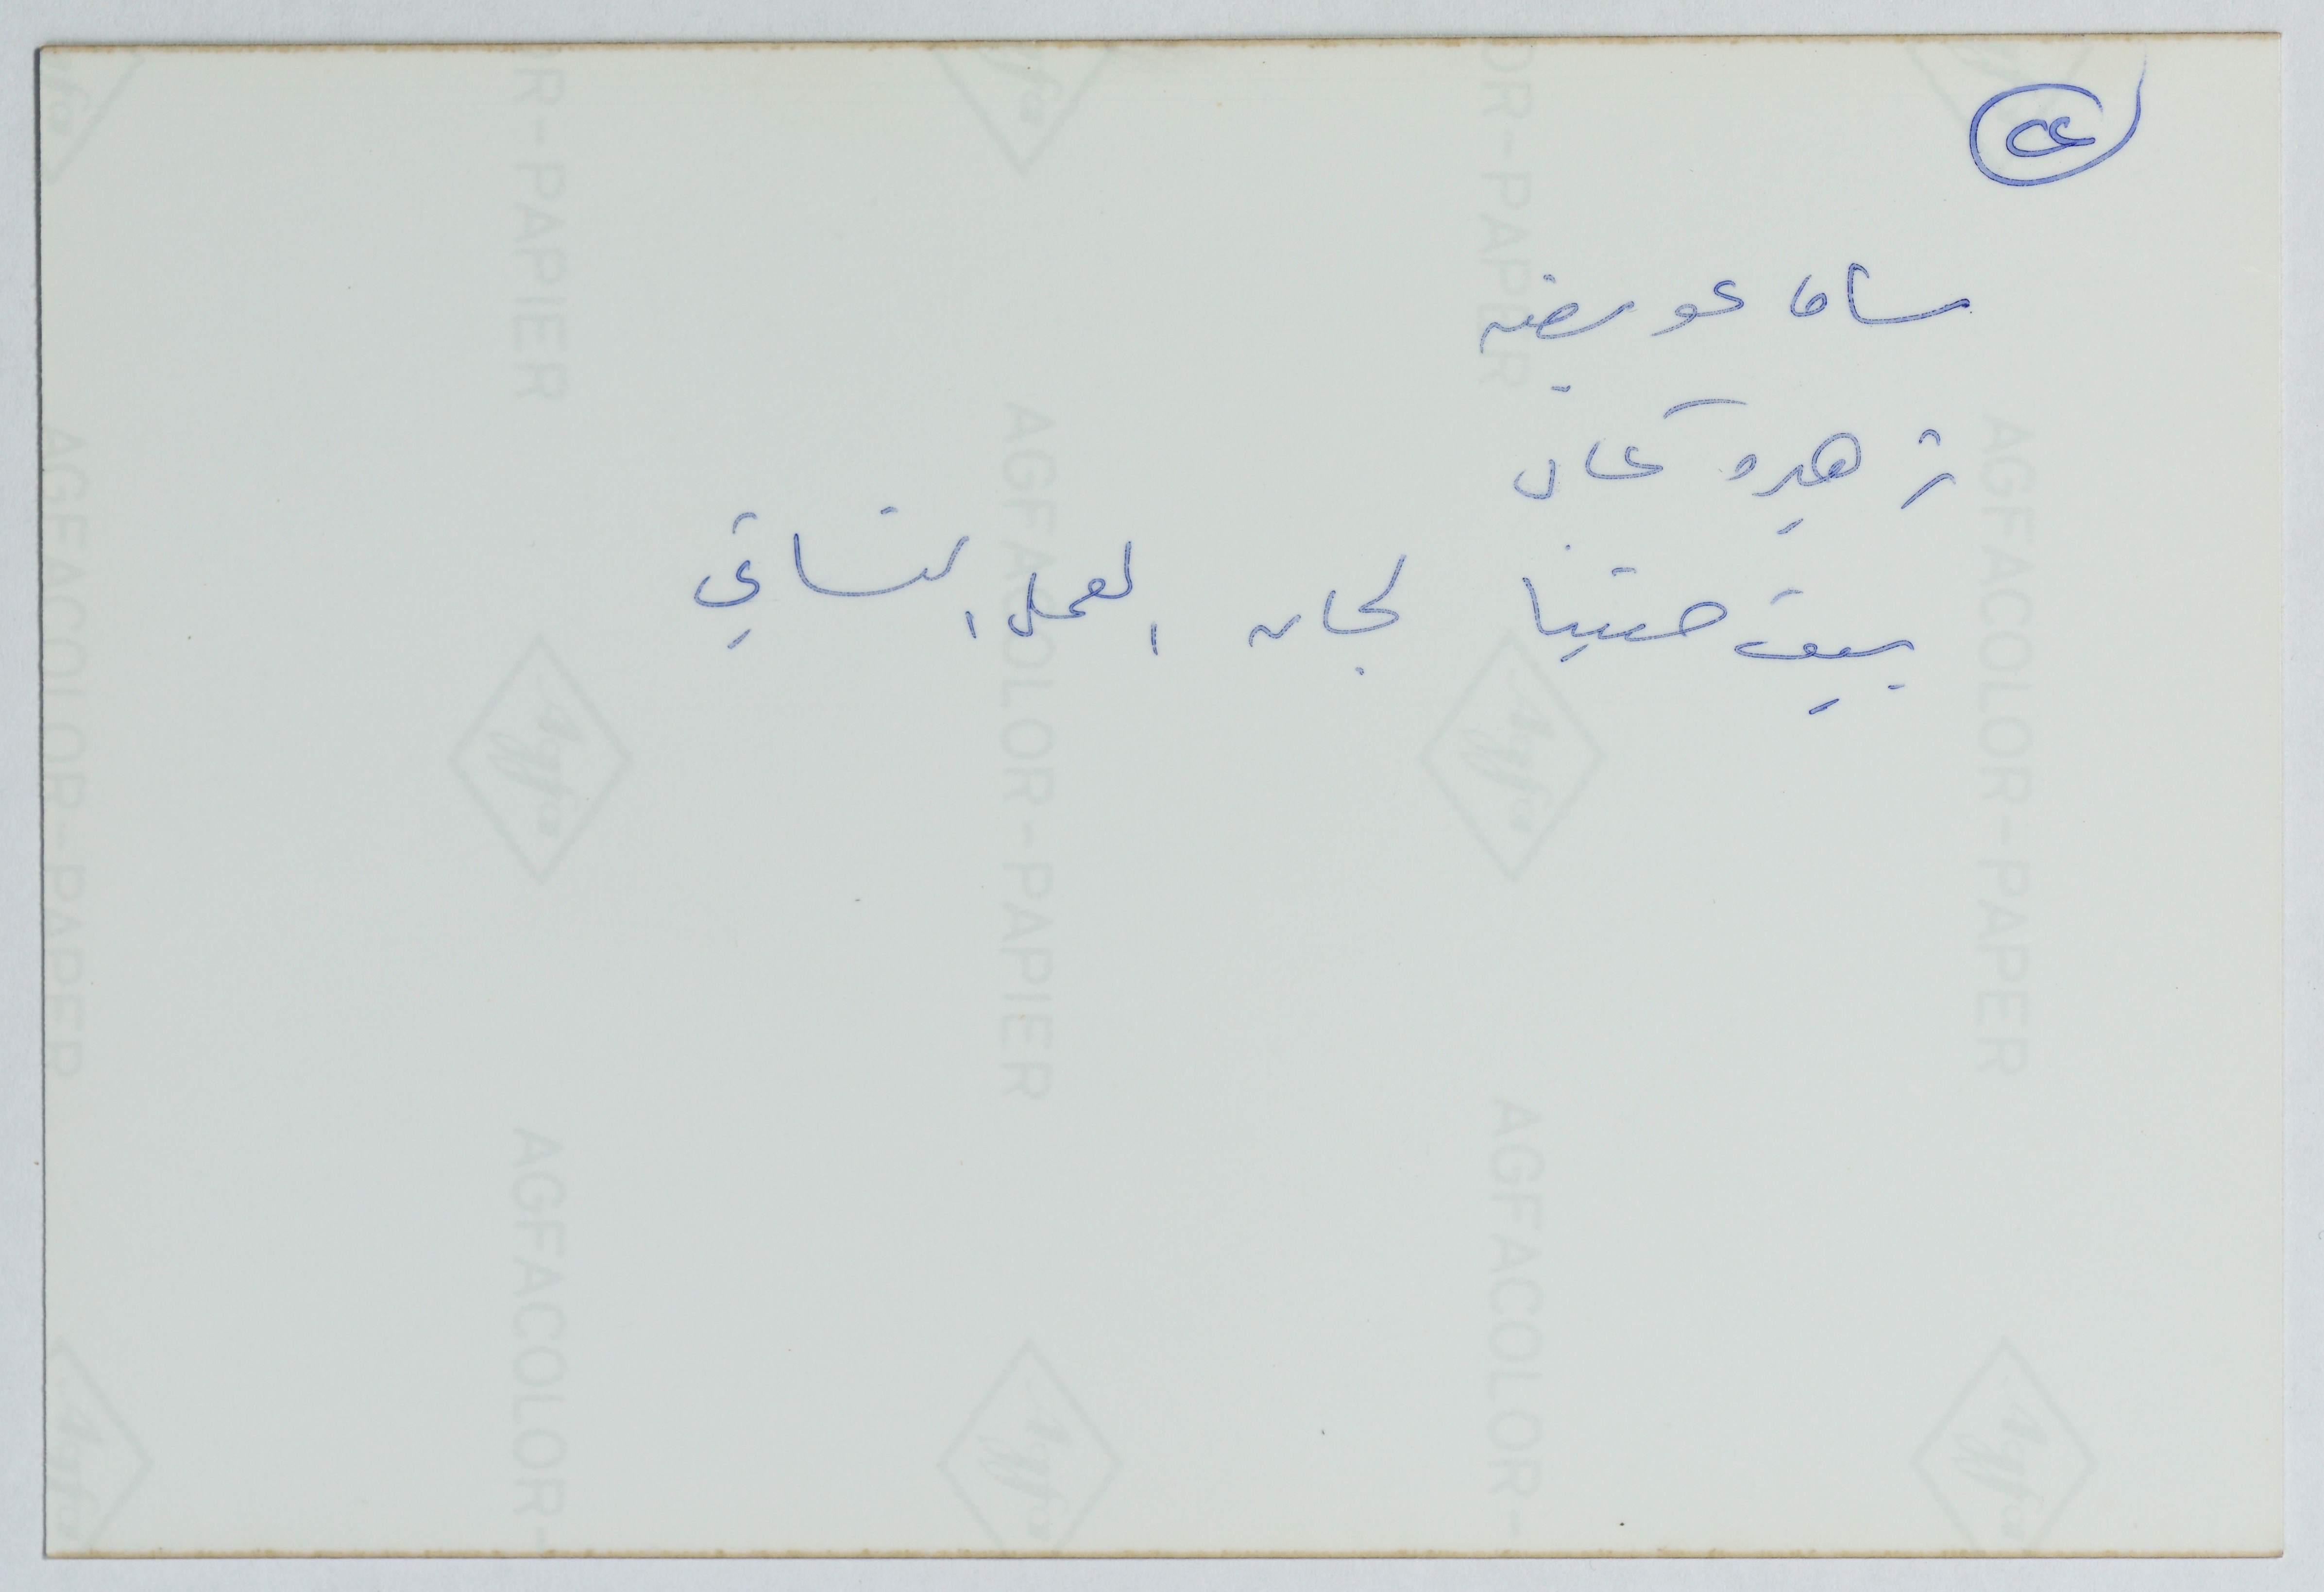 ساما عويضه
زهيره كمال
بيت حنينا لجان العمل النسائي
AGFACOLOR-PAPIER
AGFACOLOR-PAPER
Agfa